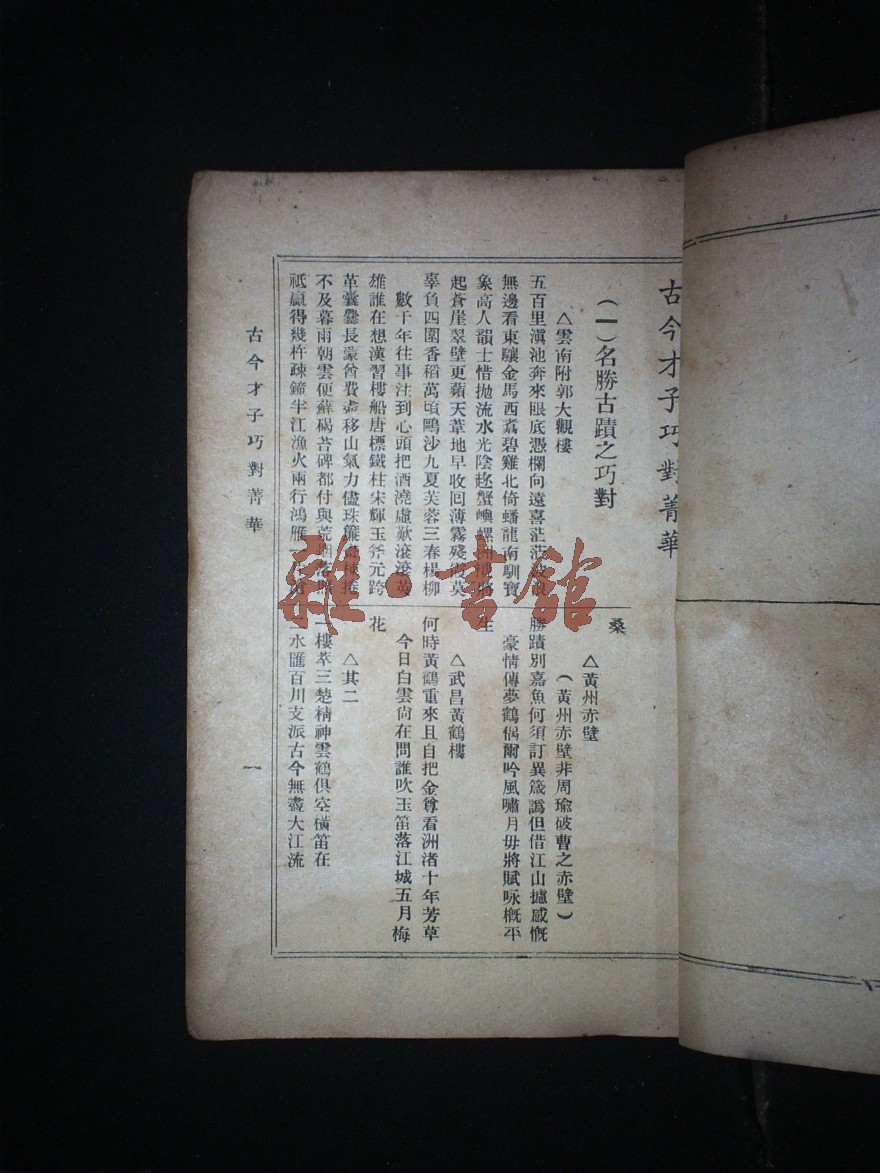 古今才子巧對菁華
(一)名勝古蹟之巧對
△雲南附郭大觀樓
五百里滇池奔來眼底憑欄向遠喜茫茫波浪
無邊看東驤金馬西翥碧雞北倚蟠龍南馴寶
象高人韻士惜拋流水光陰趁蟹嶼螺洲
起蒼崖翠壁更蘋天葦地早收回薄霧殘霞莫
辜負四圍香稻萬頃鷗沙九夏芙蓉三春楊柳
數千年往事注到心頭把酒澆虛歎滾滾英
雄誰在想漢習樓船唐標鐵柱宋輝玉斧元跨
革囊爨長蒙酋費盡移山氣力儘珠簾棟捲
不及暮雨朝雲便蘚碣苔碑都付與荒
祗贏得幾杵疎鐘半江漁火兩行鴻雁一
桑
△黃州赤壁
(黃州赤壁非周瑜破曹之赤壁)
勝蹟別嘉魚何須訂異箴譌但借江山攄感慨
豪情傳夢鶴偶爾吟風嘯月毋將賦咏概平
生
△武昌黃鶴樓
何時黃鶴重來且自把金尊看洲渚十年芳草
今日白雲尙在問誰吹玉笛落江城五月梅
花
△其二
一樓萃三楚精神雲鶴俱空橫笛在
二水匯百川支派古今無盡大江流
古今才子巧對菁華
一
雜·書館